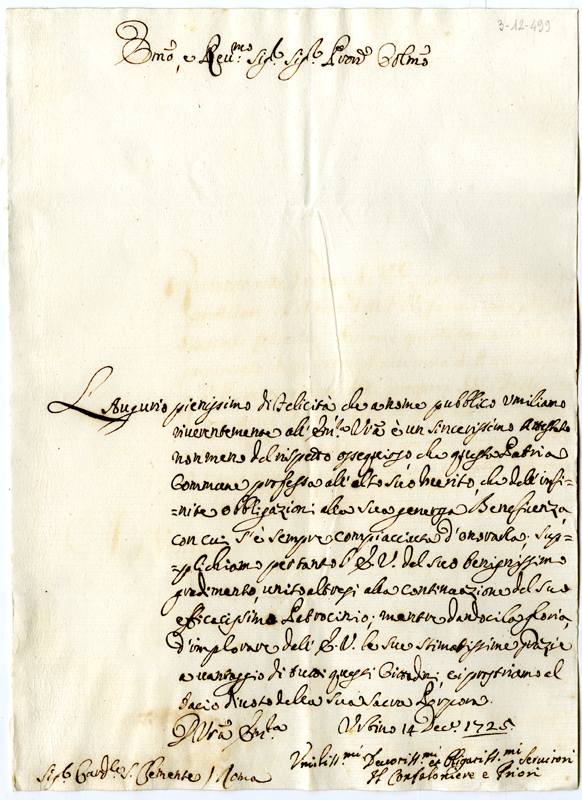 3-12-499
Emo, e Reu.mo Sig.r Sig.r Pron Colmo
L'Augurio pienissimo di Felicità che a nome pubblico Umiliamo
riuerentemente all' Em.za Vra è un sincerissimo Attestato
non meno del rispetto ossequioso, che questa Patria
Commune professa all' alto suo Merito, che dell' infi=
=nite Obbligazioni alla sua generosa Beneficienza,
con cui s'è sempre compiacciuta d'onorarla; sup=
=plichiamo pertanto l' E.V. del suo benignissimo
gradimento, unito altresi alla continuazione del suo
efficacissimo Patrocinio; mentre dandoci la gloria
d'implorare dell' E.V. le sue stimatissime grazie
a uantaggio di tutti questi Cittadini, ci prostriamo al
bacio diuoto della sua Sacra Porpora.
D Vra Em.za Urbino 14 Dec.e 1725
Umiliss.mi Deuotiss.mi et Obligatiss.mi Seruitori
Il Confaloniere e Priori
Sig.r Card.le S. Clemente / Roma